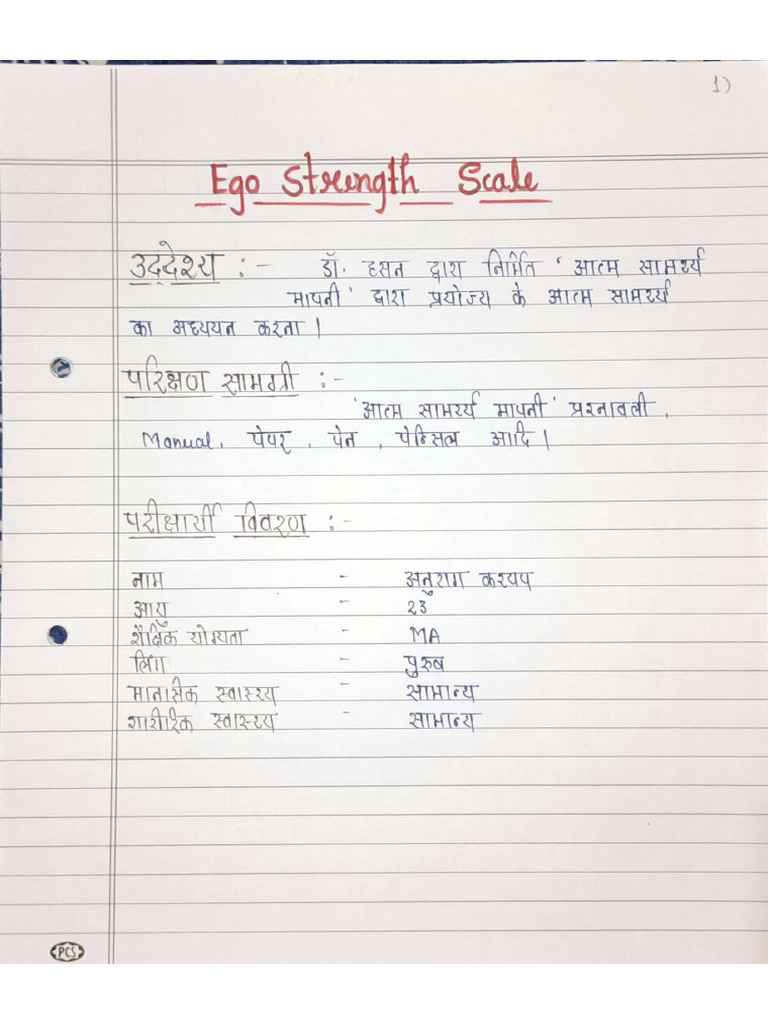 1)
Ego Strength Scale
उद्देश्य :- डॉ. हसन द्वारा निर्मित 'आत्म सामर्थ्य
मापनी' द्वारा प्रयोज्य के आत्म सामर्थ्य
का अध्ययन करना ।
परिक्षण सामग्री :-
'आत्म सामर्थ्य मापनी' प्रश्नावली,
Manual, पेपर, पेन, पेन्सिल आदि ।
परीक्षार्थी विवरण :-
नाम - अनुराग कश्यप
आयु - 23
शैक्षिक योग्यता - MA
लिंग - पुरुष
मानसिक स्वास्थ्य - सामान्य
शारीरिक स्वास्थ्य - सामान्य
PCS